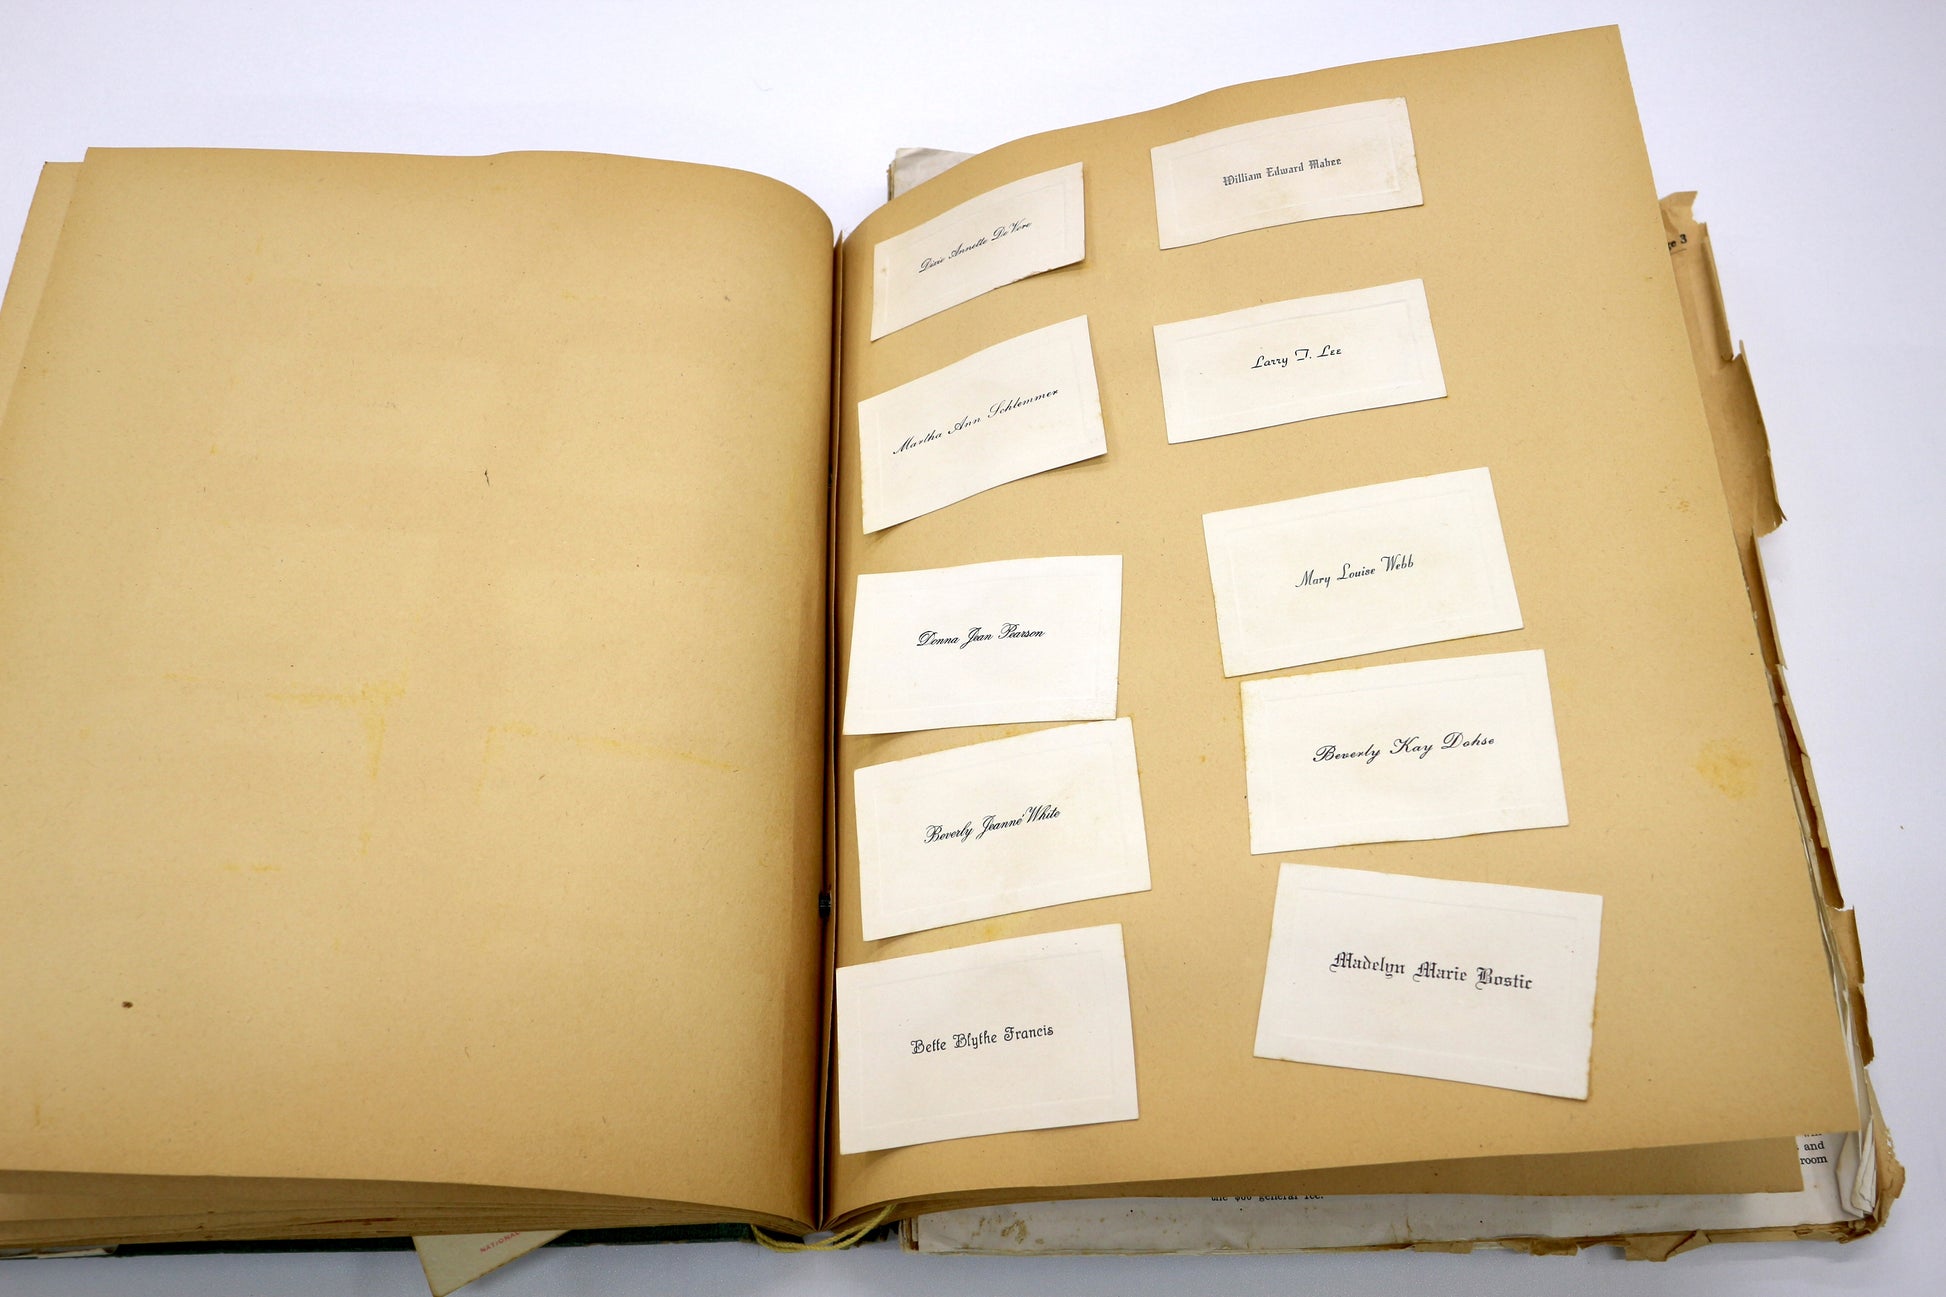 Dixie Annette De Vore
William Edward Mabee
Martha Ann Schlemmer
Larry T. Lee
Donna Jean Pearson
Mary Louise Webb
Beverly Jeanne White
Beverly Kay Dohse
Bette Blythe Francis
Madelyn Marie Bostic
3
and
room
the $60 general fee.
NATIONAL